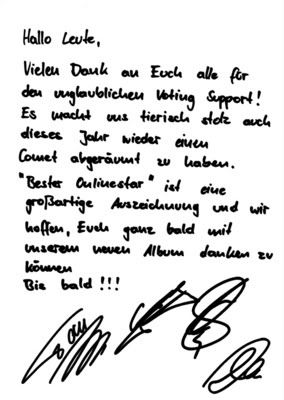 Hallo Leute,
Vielen Dank an Euch alle für
den unglaublichen Voting Support!
Es macht uns tierisch stolz auch
dieses Jahr wieder einen
Comet abgeräumt zu haben.
"Bester Onlinestar" ist eine
großartige Auszeichnung und wir
hoffen, Euch ganz bald mit
unserem neuen Album danken zu
können
Bis bald !!!